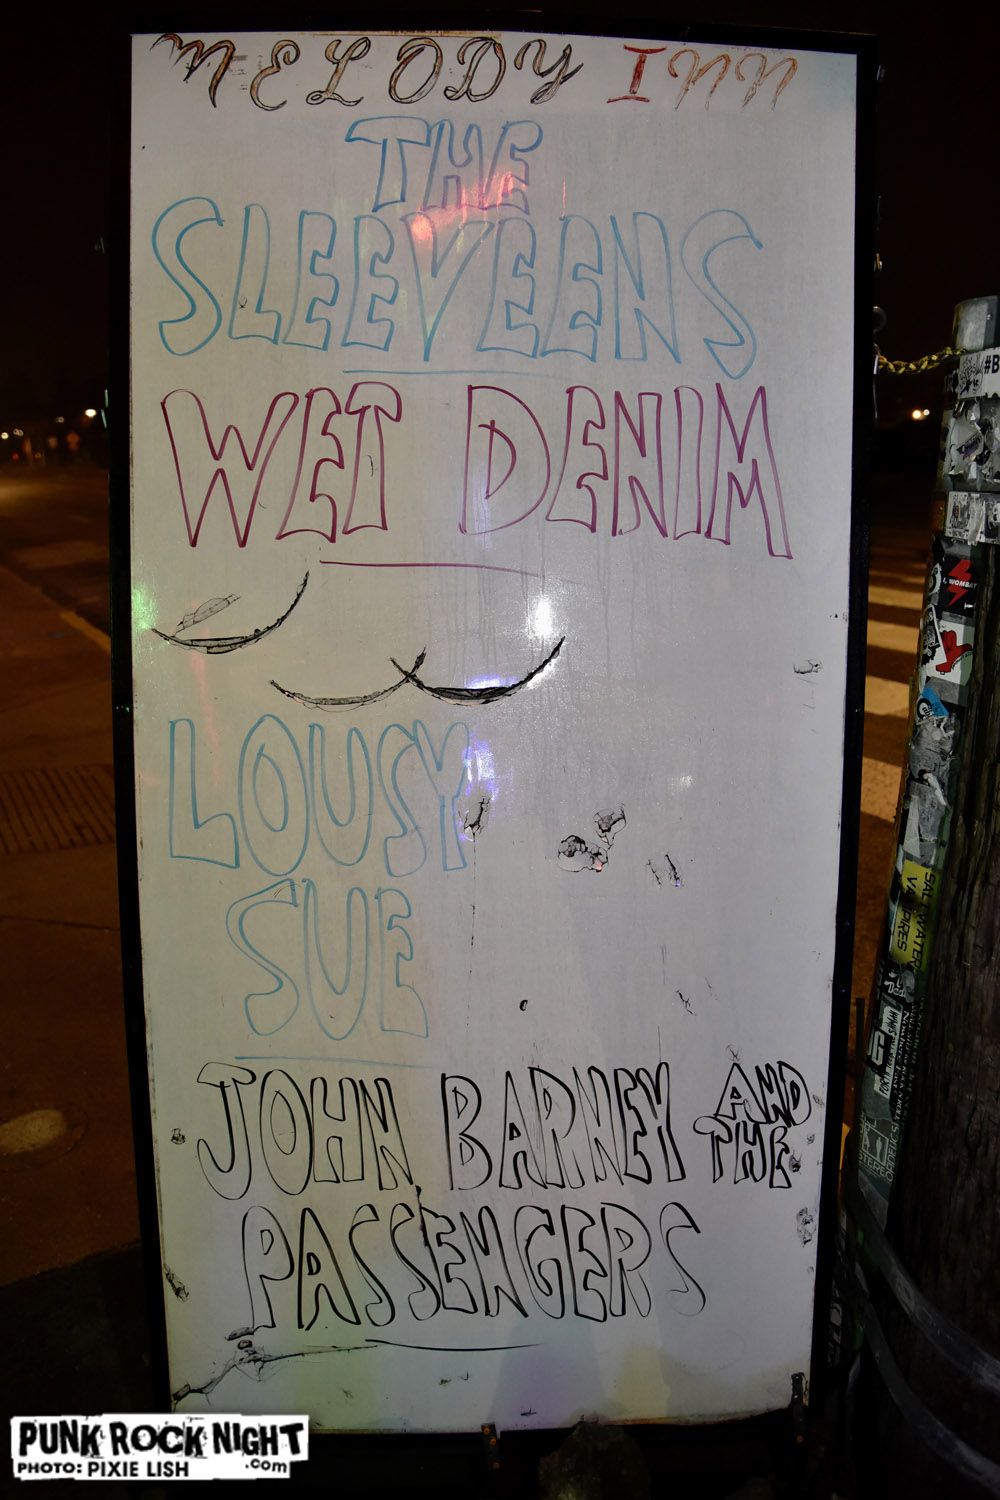 MELODY INN
THE
SLEEVEENS
WET DENIM
LOUSY
SUE
JOHN BARNEY AND
THE
PASSENGERS
#B
WOMBAT
SALTWATER
VAMPIRES
PUNK ROCK NIGHT
.com
PHOTO: PIXIE LISH